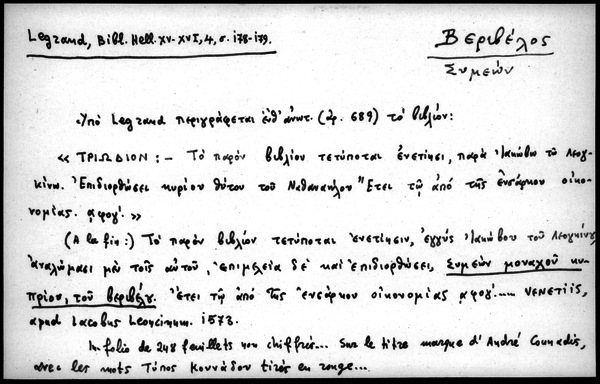 Legrand, Bibl. Hell. XV-XVI, 4, σ. 178-179.
Βεριβέλος
Συμεών
Υπό Legrand περιγράφεται ἐνθ' ἀνωτ. (ἀρ. 689) τό βιβλίον:
« ΤΡΙΩΔΙΟΝ : — Τό παρόν βιβλίον τετύποται ἐνετίησι, παρά Ἰακώβω τῶ Λεογ-
κίνω. Ἐπιδιορθώσει κυρίου θύτου τοῦ Ναθαναήλου Ἔτει τῷ ἀπό τῆς ἐνσάρκου οἰκο-
νομίας. ͵αφογ'. »
(A la fin:) Τό παρόν βιβλίον τετύποται ἐνετίησιν, ἐγγύς Ἰακώβου τοῦ Λεογκίνου
ἀναλώμασι μέν τοῖς αὐτοῦ, ἐπιμελεία δέ καί ἐπιδιορθώσει, Συμεών μοναχοῦ κυ-
πρίου, τοῦ βεριβέλῃ. Ἔτει τῷ ἀπό τῆς ἐνσάρκου οἰκονομίας ͵αφογ'.... VENETIIS,
apud Iacobum Leoncinum. 1573.
In folio de 248 feuillets non chiffrés... Sur le titre marque d'André Counadis,
avec les mots Τύπος Κουνάδου tirés en rouge...